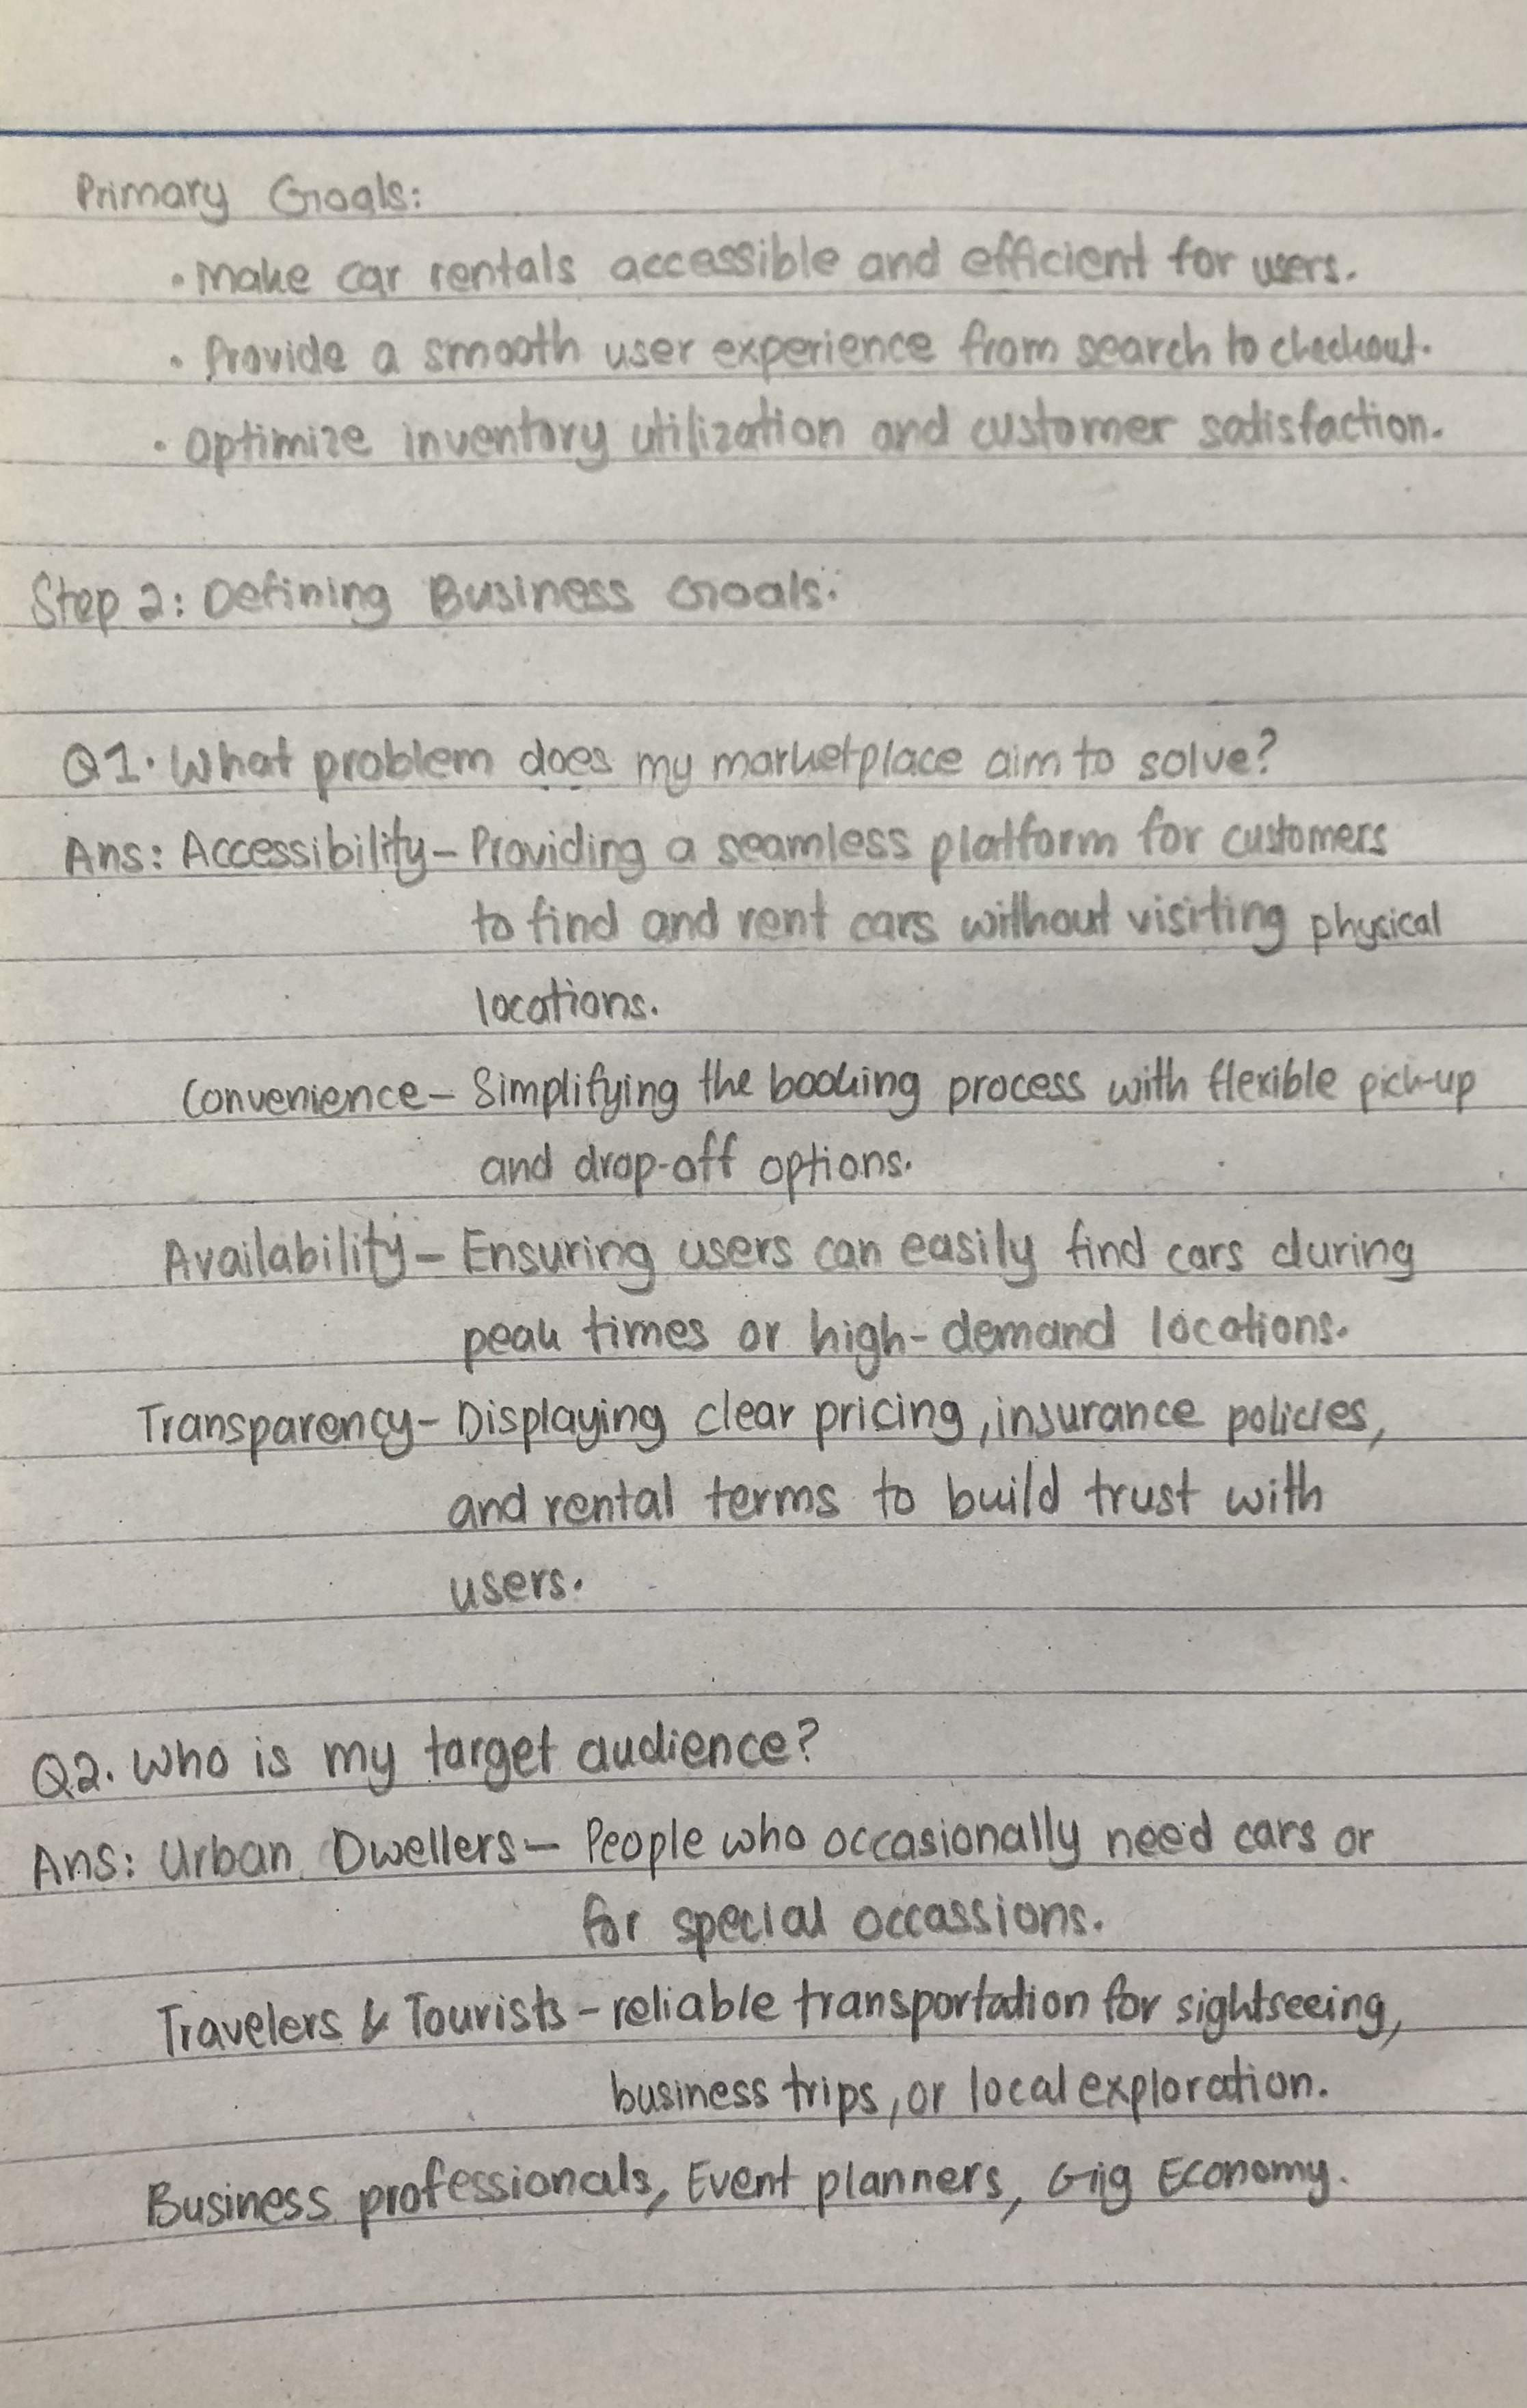 Primary Goals:
• Make car rentals accessible and efficient for users.
• Provide a smooth user experience from search to checkout.
• Optimize inventory utilization and customer satisfaction.
Step 2: Defining Business Goals:
Q1. What problem does my marketplace aim to solve?
Ans: Accessibility – Providing a seamless platform for customers
to find and rent cars without visiting physical
locations.
Convenience – Simplifying the booking process with flexible pick-up
and drop-off options.
Availability – Ensuring users can easily find cars during
peak times or high-demand locations.
Transparency – Displaying clear pricing, insurance policies,
and rental terms to build trust with
users.
Q2. Who is my target audience?
Ans: Urban Dwellers – People who occasionally need cars or
for special occassions.
Travelers & Tourists – reliable transportation for sightseeing,
business trips, or local exploration.
Business professionals, Event planners, Gig Economy.